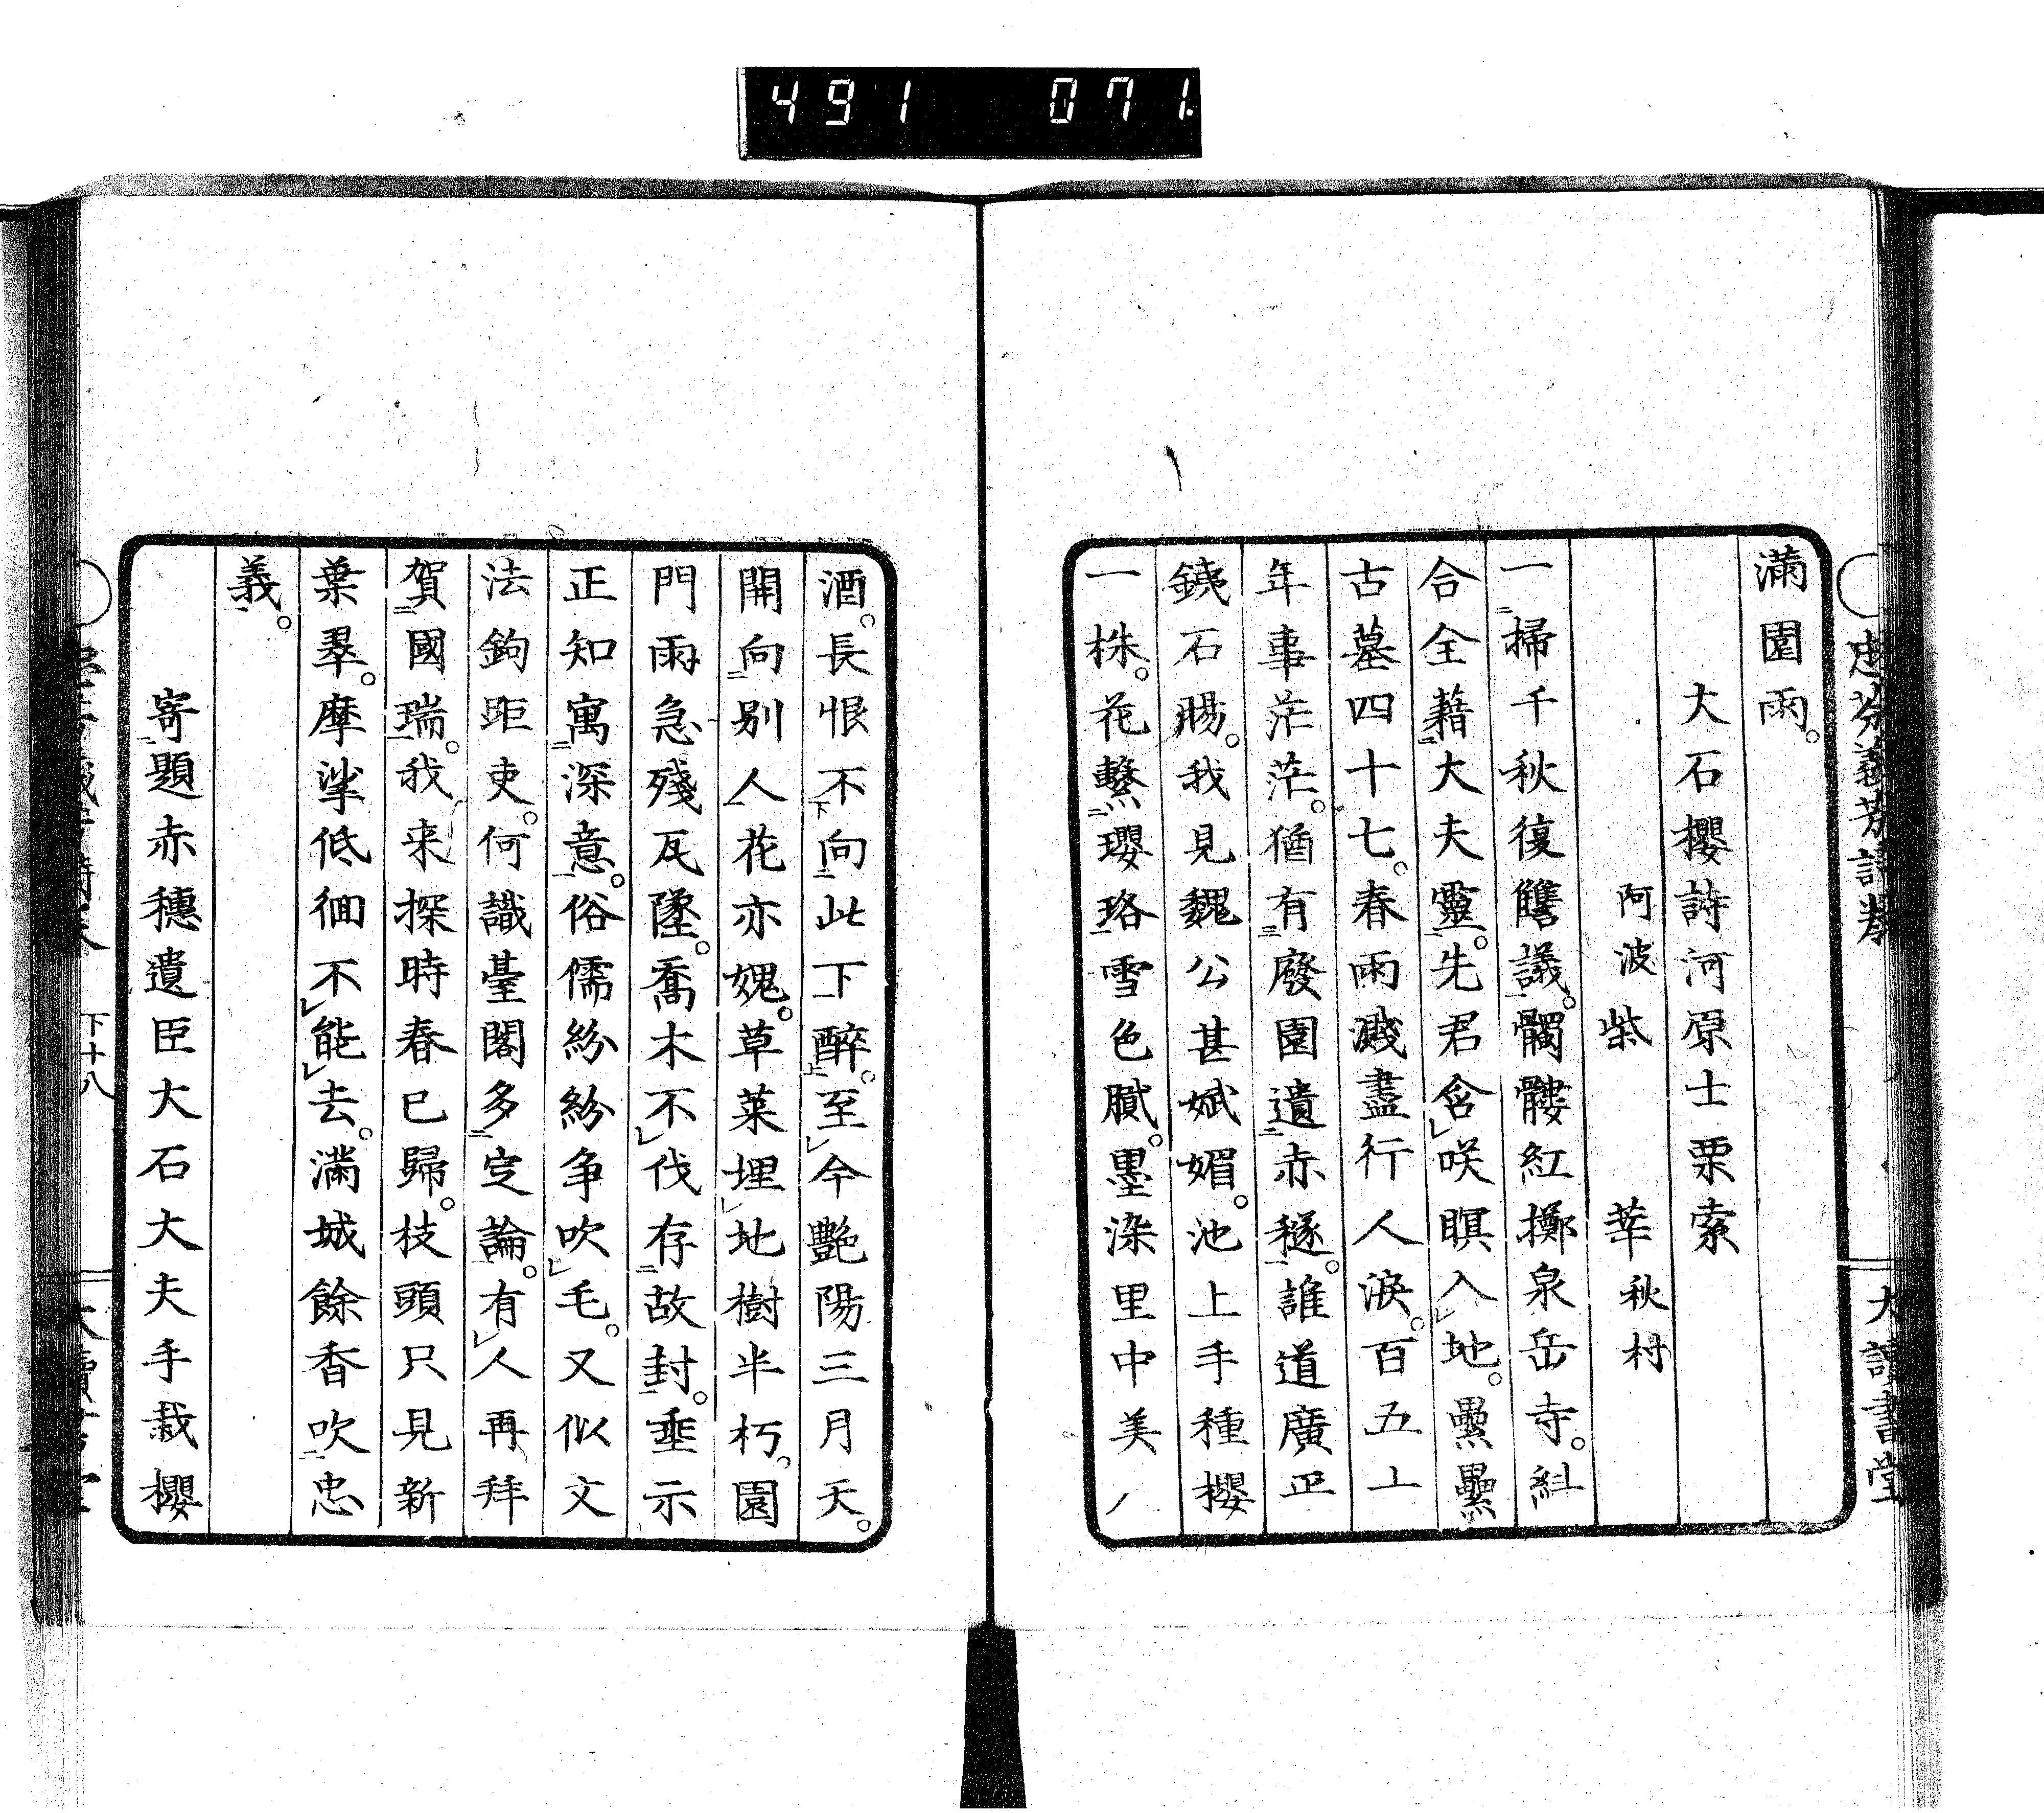 491 071.
忠芬義芳詩巻
大讀書堂
滿園雨。
大石櫻詩河原士栗索
阿波 柴 莘 秋村
一掃千秋復讐議。髑髏紅擲泉岳寺。糾
合全藉大夫靈。先君含咲瞑入地。纍纍
古墓四十七。春雨濺盡行人淚。百五十
年事茫茫。猶有廢園遺赤穟。誰道廣平
銕石腸。我見魏公甚娬媚。池上手種櫻
一株。花繫瓔珞雪色膩。墨染里中美
酒。長恨不向此下醉。至今艷陽三月天。
開向別人花亦媿。草菜埋地樹半朽。園
門雨急殘瓦墜。喬木不伐存故封。垂示
正知寓深意。俗儒紛紛争吹毛。又似文
法鉤距吏。何識臺閣多定論。有人再拜
賀國瑞。我来探時春已歸。枝頭只見新
葉翠。摩挲低徊不能去。滿城餘香吹忠
義。
寄題赤穗遺臣大石大夫手栽櫻
下十八